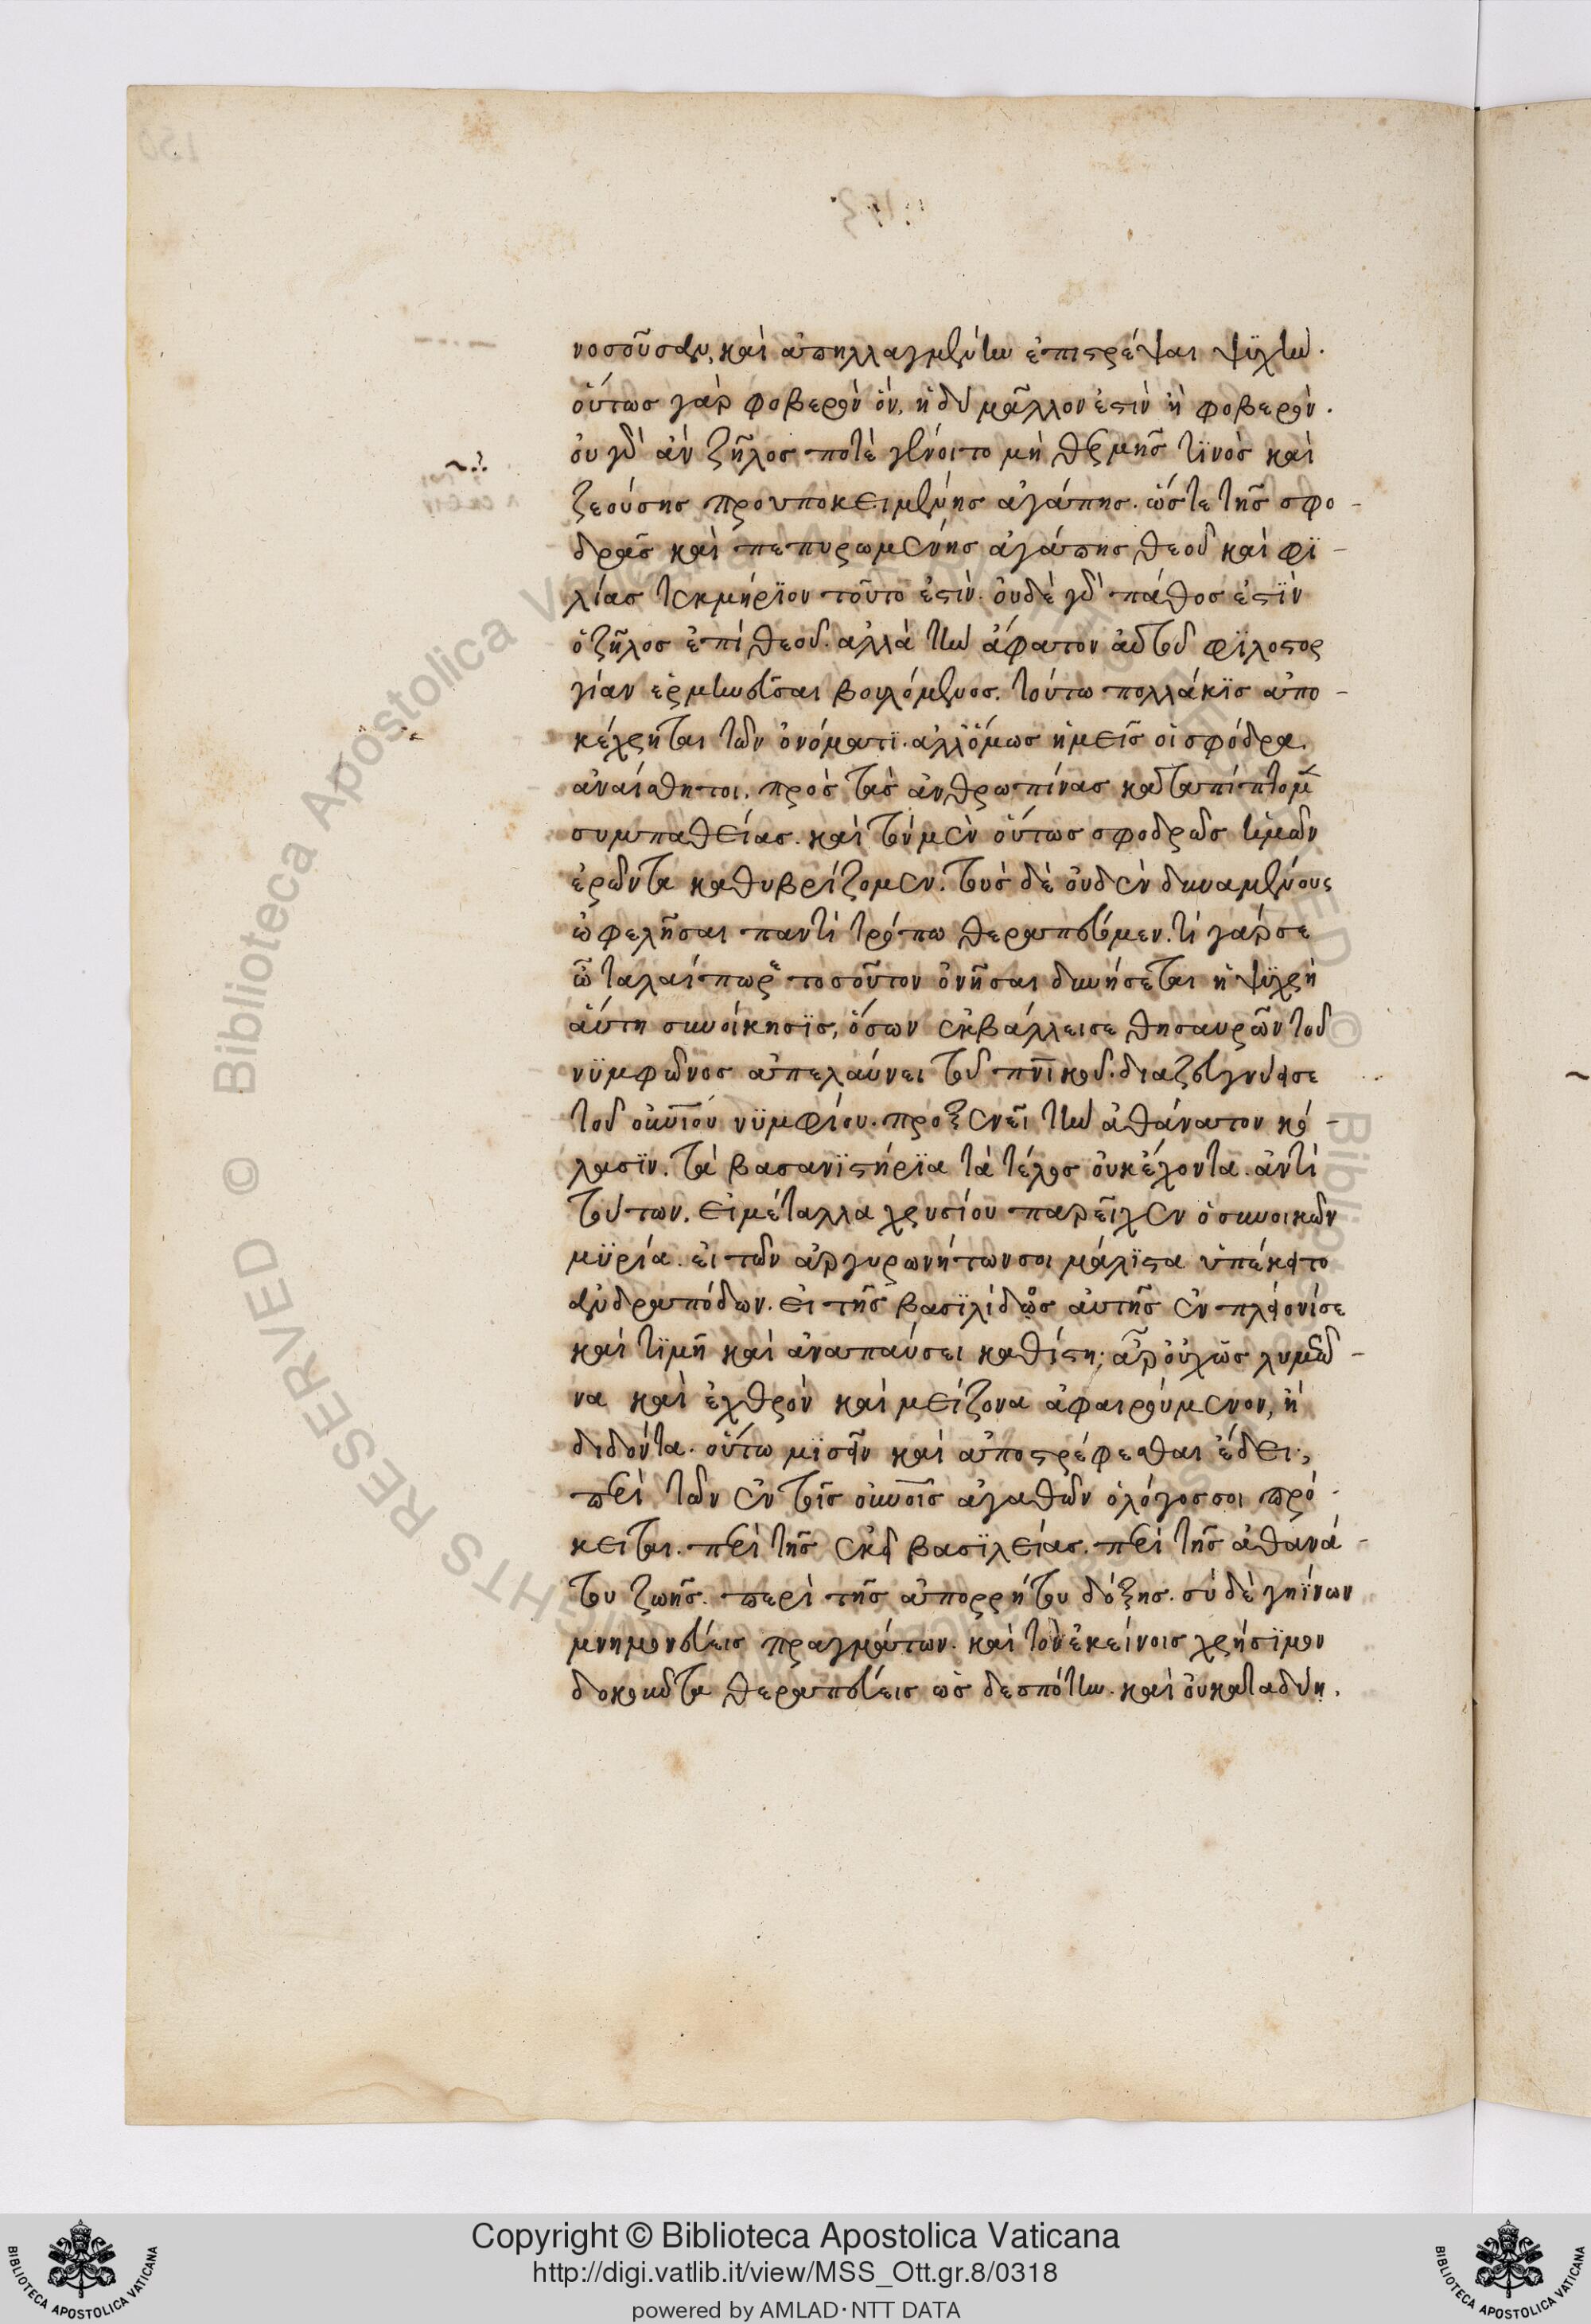 νοσοῦσαν, καὶ ἀπηλλαγμένην ἐπιστρέψαι ψϋχήν.
οὕτως γὰρ φοβερὸν ὂν, ἡδὺ μᾶλλον ἐστὶν ἢ φοβερόν.
οὐ γὰρ ἀν ζῆλος ποτὲ γένοιτο μὴ θερμῆς τϊνὸς καὶ
ζεούσης προϋποκειμένης ἀγάπης. ὥστε τῆς σφο-
δρᾶς καὶ πεπυρωμένης ἀγάπης θεοῦ καὶ φϊ-
λίας τεκμήρϊον τοῦτο ἐστίν. οὐδὲ γὰρ πάθος ἐστϊν
ὁ ζῆλος ἐπὶ θεοῦ. ἀλλὰ τὴν ἄφατον αὐτοῦ φϊλοστορ
γίαν ἑρμηνεῦσαι βουλόμενος. τούτω πολλάκϊς ἀπο-
κέχρηται τῶν ὀνόματϊ. ἀλλ' ὅμως ἡμεῖς οἱ σφόδρα.
ἀναίσθητοι. πρὸς τὰς ἀνθρωπίνας καταπίπτομεν
συμπαθείας. καὶ τὸν μὲν οὕτως σφοδρῶς ἡμῶν
ἐρῶντα καθυβρίζομεν. τοὺς δὲ οὐδὲν δυναμένους
ὠφελῆσαι παντὶ τρόπω θεραπεύομεν. τί γάρ σε
ὦ ταλαίπωρε τοσοῦτον ὀνῆσαι δυνήσεται ἡ ψϋχρὴ
αὕτη συνοίκησϊς, ὅσων ἐκβάλλει σε θησαυρῶν τοῦ
νϋμφῶνος ἀπελαύνει τοῦ πνικοῦ. διαζεύγνυσί σε
τοῦ οὐνίου νϋμφίου. προξενεῖ τὴν ἀθάνατον κό-
λασϊν. τὰ βασανϊστήρϊα τὰ τέλος οὐκ ἔχοντα. ἀντὶ
τούτων. εἰ μέταλλα χρυσίου παρεῖχεν ὁ συνοικῶν
μϋρία. εἰ τῶν ἀργυρωνήτων σοι μάλϊστα ὑπέκειτο
ἀνδραπόδων. εἰ τῆς βασϊλίδος αὐτῆς ἐν πλείονί σε
καὶ τϊμῆ καὶ ἀναπαύσει καθίστη; ἆρ' οὐχ ὡς λυμεῶ-
να καὶ ἐχθρὸν καὶ μείζονα ἀφαιρούμενον, ἢ
διδόντα. οὕτω μϊσεῖν καὶ ἀποστρέφεσθαι ἔδει;
περὶ τῶν ἐν τοῖς οὐνοῖς ἀγαθῶν ὁ λόγος σοι πρό-
κειται. περὶ τῆς ἐκεῖ βασϊλείας. περὶ τῆς ἀθανά-
του ζωῆς. περὶ τῆς ἀπορρήτου δόξης. σὺ δὲ γηΐνων
μνημονεύεις πραγμάτων. καὶ τὸν ἐκείνοις χρήσϊμον
δοκοῦντα θεραπεύεις ὡς δεσπότην. καὶ οὐ καταδύη.
Copyright © Biblioteca Apostolica Vaticana
http://digi.vatlib.it/view/MSS_Ott.gr.8/0318
powered by AMLAD·NTT DATA